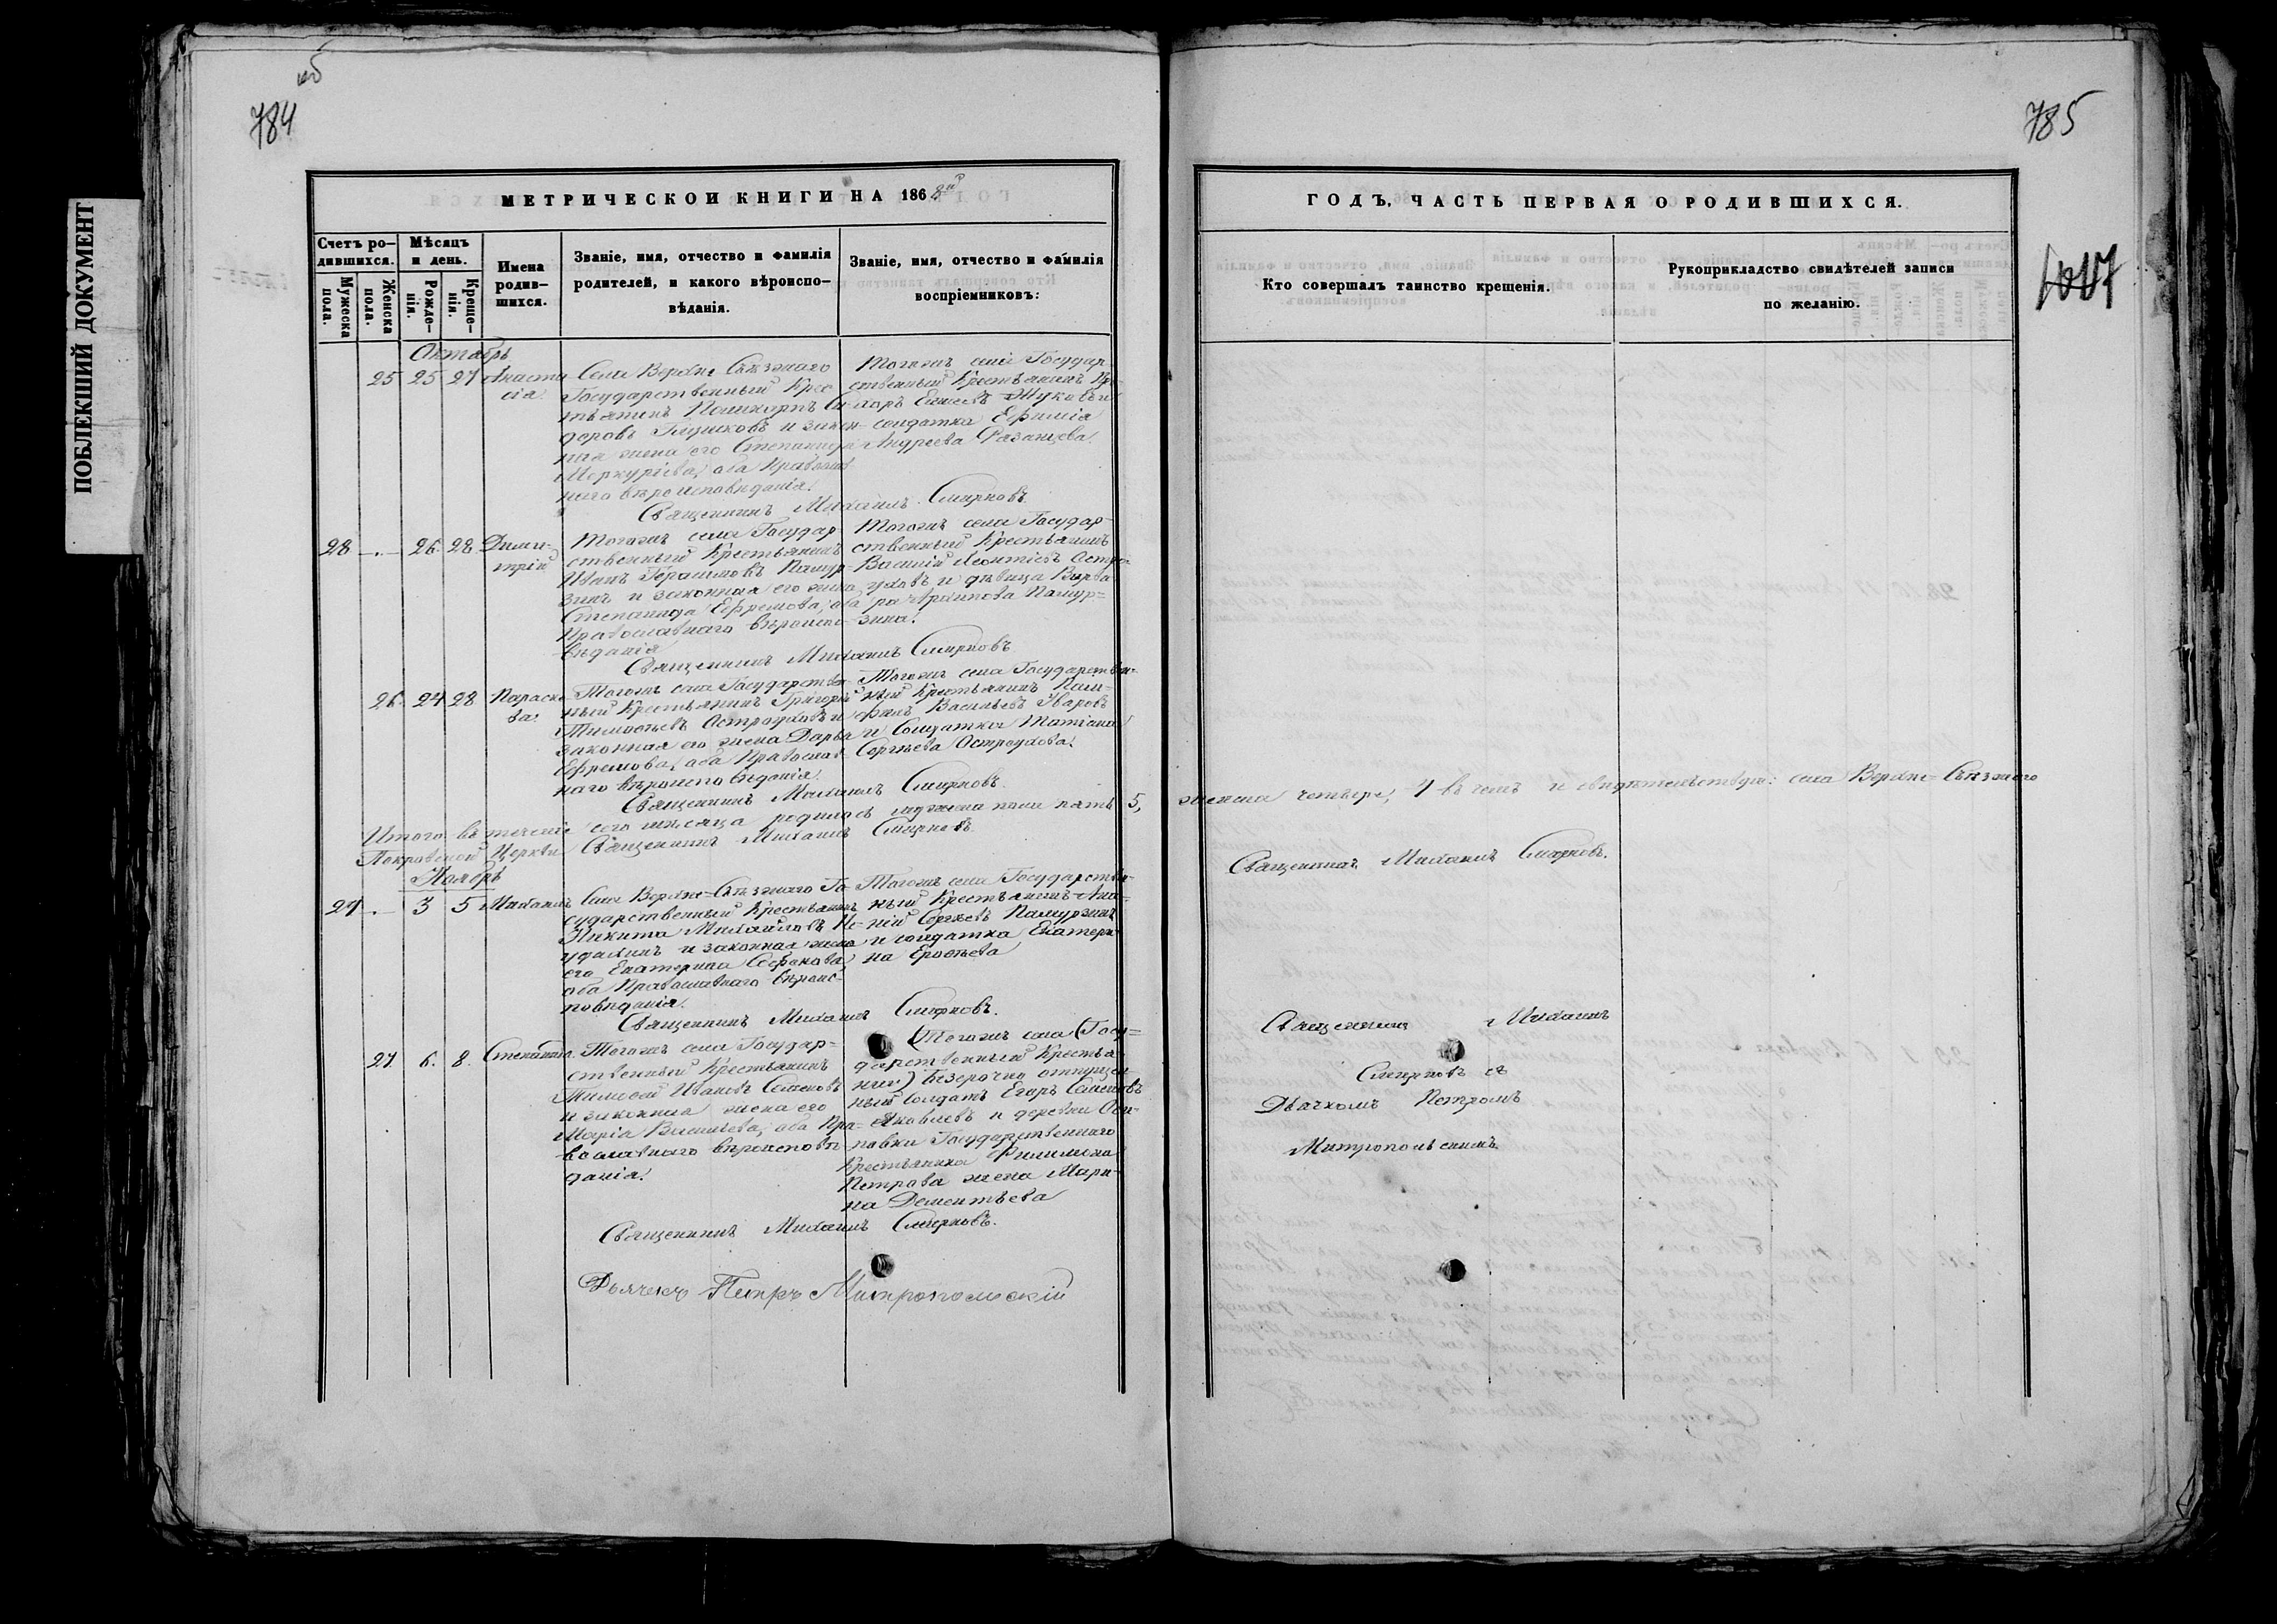 ПОБЛЕКШИЙ ДОКУМЕНТ
784
785
МЕТРИЧЕСКОЙ КНИГИ НА 186
Счетъ ро-
дившихся.
Мужеска
пола.
Женска
пола.
Мѣсяцъ
и день.
Рожде-
нія.
Креще-
нія.
Имена
родив-
шихся.
Званіе, имя, отчество и фамилія
родителей, и какого вѣроиспо-
вѣданія.
Званіе, имя, отчество и фамилія
воспріемниковъ:
Октябрь
25 25 27 Анаста
сія
Села Верхне Съѣзжаго
Государственный Крес
тьянинъ Поликарпъ Си
доровъ и закон
ная жена его Степанида
Меркуріева, оба Православ
наго вѣроисповѣданія.
Тогожъ села Государ
ственный Крестьянинъ
солдатка Ефимія
Андреева Казанцева.
Священникъ Михаилъ Смирновъ
28 26 28 Дими-
трій
Тогожъ села Государ
ственный Крестьянинъ
Иванъ Герасимовъ Памур
зинъ и законная его жена
Степанида Ефремова, оба
Православнаго вѣроиспо-
вѣданія
Тогожъ села Государ-
ственный Крестьянинъ
Василій Леонтьевъ Остро
уховъ и дѣвица Варва
ра Архипова Памур=
зина.
Священникъ Михаилъ Смирновъ
26. 27 28 Параске
ва.
Тогожъ села Государствен
ный Крестьянинъ Григорій
Тимофеевъ Остроуховъ и
законная его жена Дарья
Ефремова, оба Православ
наго вѣроисповѣданія.
Тогожъ села Государствен-
ный Крестьянинъ Пам-
филъ Васильевъ Уваровъ
и Солдатка Татіана
Сергѣева Остроухова.
Священникъ Михаилъ Смирновъ.
Итого въ теченіе сего мѣсяца родилось мужеска пола пять 5,
Покровской Церкви Священникъ Михаилъ Смирновъ.
Ноябрь
29 3 5 Михаилъ
Села Верхне-Съѣзжаго Го
сударственный Крестьянинъ
Никита Михайловъ Не-
удахинъ и законная жена
его Екатерина Софонова,
оба Православнаго вѣроис-
повѣданія.
Тогожъ села Государствен-
ный Крестьянинъ Ана-
ній Сергѣевъ Памурзинъ
и солдатка Екатери
на Ерофѣева
Священникъ Михаилъ Смирновъ.
27. 6. 8. Степанида.
Тогожъ села Государ-
ственный Крестьянинъ
Тимофей Ивановъ Семеновъ
и законная жена его
Марія Васильева, оба Пра-
вославнаго вѣроисповѣ-
данія.
Тогожъ села (Госу=
дарственный Крестья
нинъ) безсрочно отпущен
ный солдатъ Егоръ Семеновъ
Яковлевъ и деревни Оси-
повки Государственнаго
Крестьянина Филимона
Петрова жена Мари-
на Дементьева
Священникъ Михаилъ Смирновъ.
Дьячекъ Петръ Митропольскій
ГОДЪ, ЧАСТЬ ПЕРВАЯ О РОДИВШИХСЯ.
Кто совершалъ таинство крещенія.
Рукоприкладство свидѣтелей записи
по желанію.
женска четыре, 4 въ чемъ и свидѣтельствую: села Верхне-Съѣзжаго
Священникъ Михаилъ Смирновъ.
Священникъ Михаилъ
Смирновъ съ
Дьячкомъ Петромъ
Митропольскимъ.